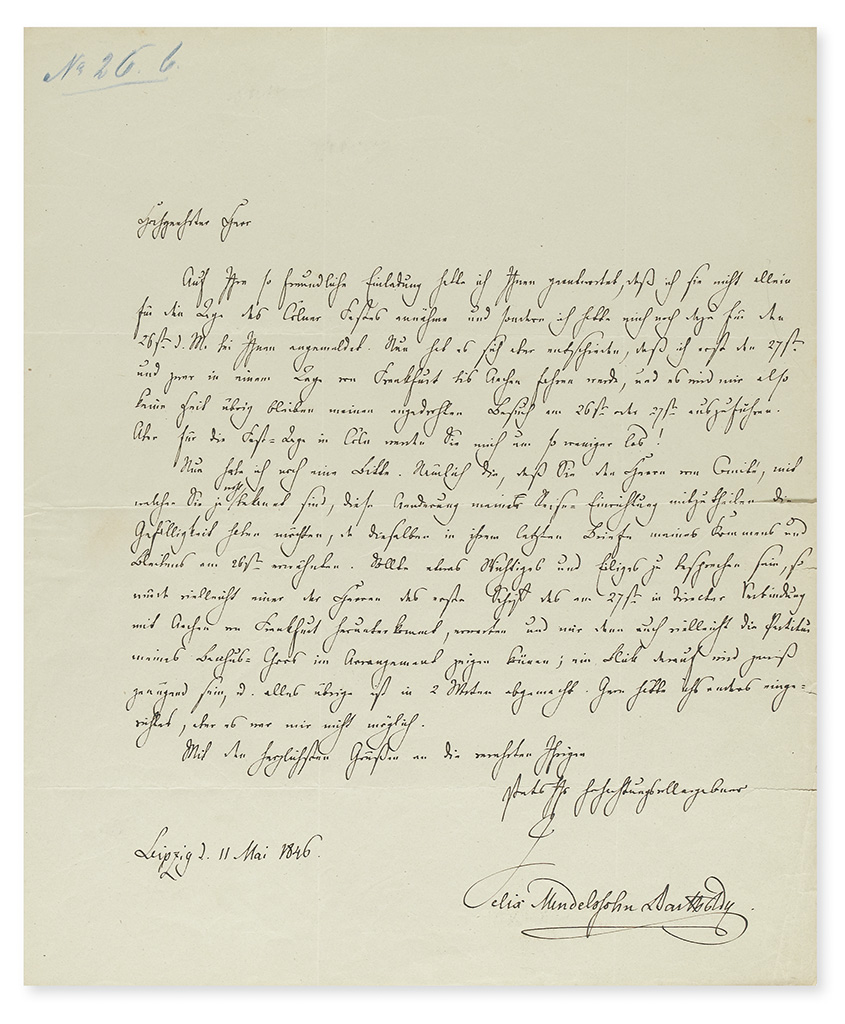 No 26. 6.
Hochgeehrter Herr
Auf Ihre so freundliche Einladung hatte ich Ihnen geantwortet, daß ich sie nicht allein
für die Tage des Cölner Festes annähme und sondern ich hatte mich noch dazu für den
26st. d. M. bei Ihnen angemeldet. Nun hat es sich aber entschieden, daß ich erst den 27st.
und zwar in einem Tage von Frankfurt bis Aachen fahren werde, und es wird mir also
keine Zeit übrig bleiben meinen angedrohten Besuch am 26st. oder 27st. auszuführen.
Aber für die Fest-Tage in Cöln werden Sie mich um so weniger los!
Nun habe ich noch eine Bitte. Nämlich die, daß Sie den Herren vom Comité, mit
welchen Sie ja bekannt sind, diese Aenderung meiner Reise-Einrichtung mitzutheilen die
Gefälligkeit haben möchten, da dieselben in ihrem letzten Briefe meines Kommens und
Bleibens am 26st. erwähnten. Sollte etwas Wichtiges und Eiliges zu besprechen sein, so
würde vielleicht einer der Herren das erste Schiff das am 27st. in directer Verbindung
mit Aachen von Frankfurt herunterkommt, erwarten und mir dann auch vielleicht die Partitur
meines Bacchus-Chors im Arrangement zeigen können; ein Blick darauf wird gewiß
genügend sein, u. alles übrige ist in 2 Worten abgemacht. Gern hätte ichs anders einge-
richtet, aber es war mir nicht möglich.
Mit den herzlichsten Grüßen an die verehrten Ihrigen
stets Ihr hochachtungsvoll ergebner
Leipzig d. 11 Mai 1846.
Felix Mendelssohn Bartholdy.